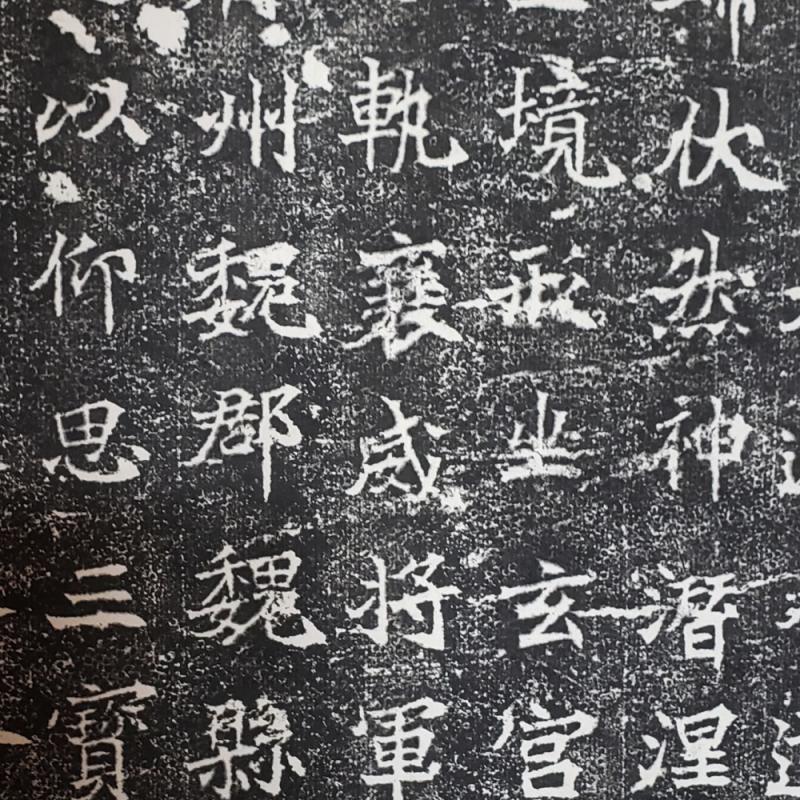 伏然神潛涅
境形坐玄宮
軌襄威將軍
州魏郡魏縣
以仰思三寶